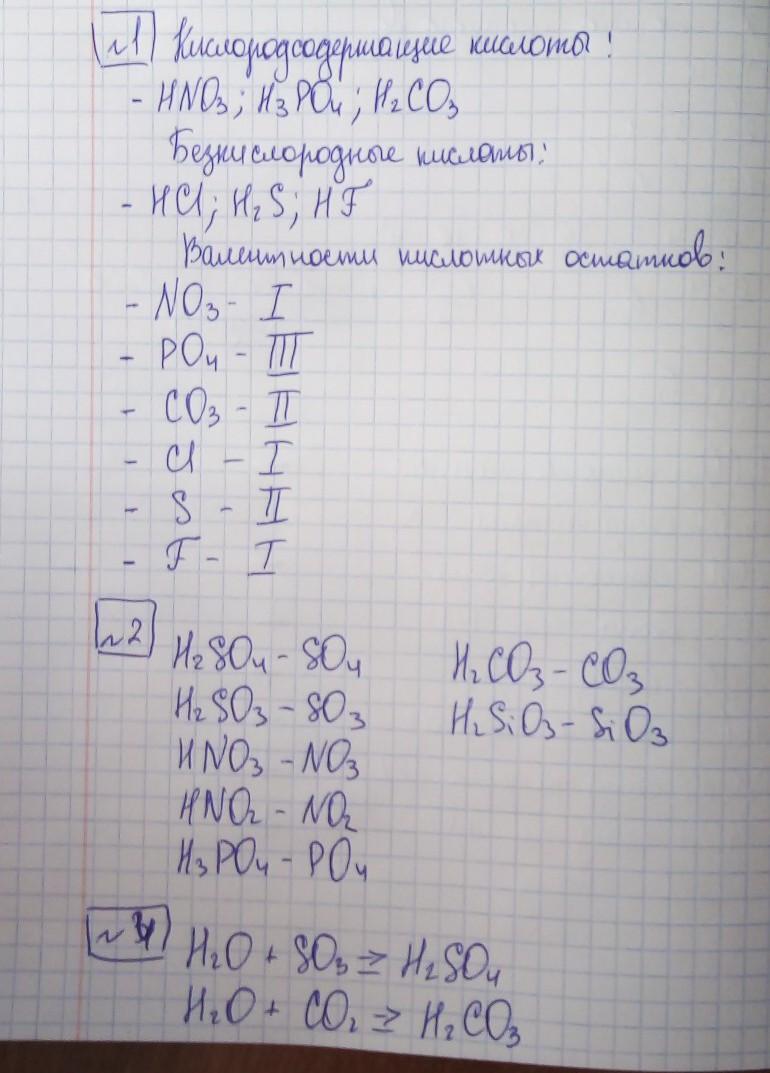 №1 Кислородсодержащие кислоты:
- HNO₃; H₃PO₄; H₂CO₃
Безкислородные кислоты:
- HCl; H₂S; HF
Валентности кислотных остатков:
- NO₃ - I
- PO₄ - III
- CO₃ - II
- Cl - I
- S - II
- F - I
№2
H₂SO₄ - SO₄
H₂SO₃ - SO₃
HNO₃ - NO₃
HNO₂ - NO₂
H₃PO₄ - PO₄
H₂CO₃ - CO₃
H₂SiO₃ - SiO₃
№4 H₂O + SO₃ = H₂SO₄
H₂O + CO₂ = H₂CO₃